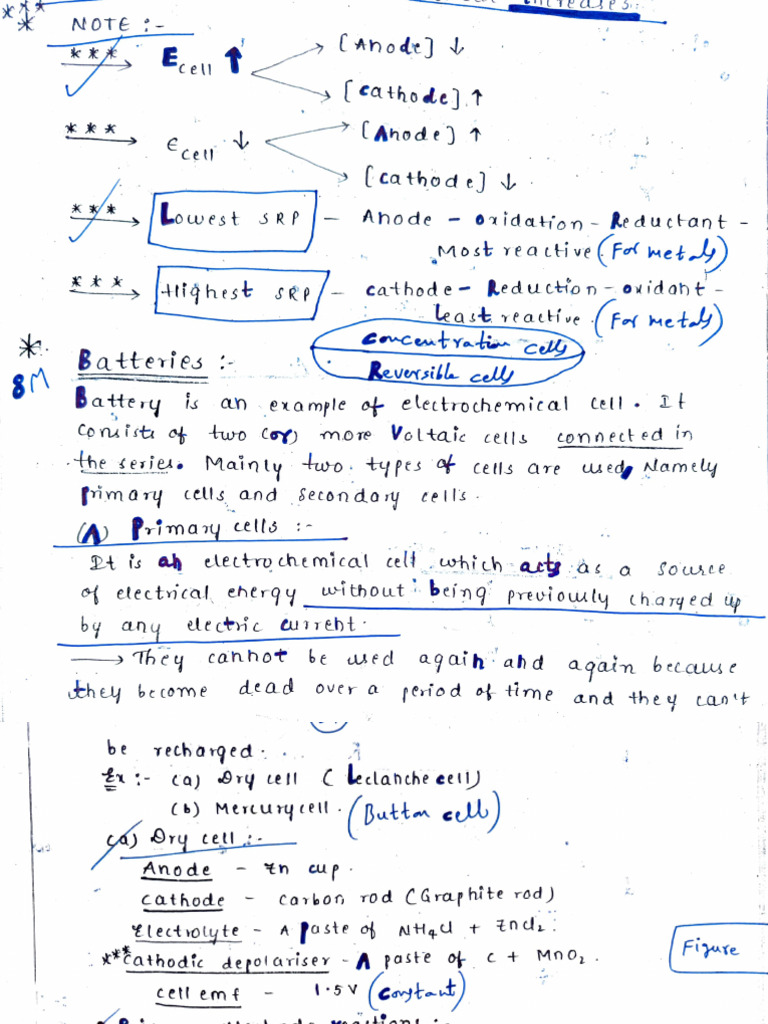 increases.
*** NOTE :-
*** → Ecell ↑ [Anode] ↓
[cathode] ↑
*** → Ecell ↓ [Anode] ↑
[cathode] ↓
*** → Lowest SRP - Anode - oxidation - Reductant -
Most reactive (For metals)
*** → Highest SRP - cathode - Reduction - oxidant -
Least reactive. (For metals)
concentration cells
* Batteries :- Reversible cells
8M
Battery is an example of electrochemical cell. It
consists of two (or) more Voltaic cells connected in
the series. Mainly two types of cells are used, Namely
primary cells and secondary cells.
(A) Primary cells :-
It is an electrochemical cell which acts as a source
of electrical energy without being previously charged up
by any electric current.
→ They cannot be used again and again because
they become dead over a period of time and they can't
be recharged.
Ex :- (a) Dry cell (Leclanche cell)
(b) Mercury cell. (Button cell)
(a) Dry cell :-
Anode - Zn cup.
cathode - carbon rod (Graphite rod)
Electrolyte - A paste of NH4Cl + ZnCl2.
***cathodic depolariser - A paste of C + MnO2. Figure
cell emf - 1.5V (constant)
reactions :-